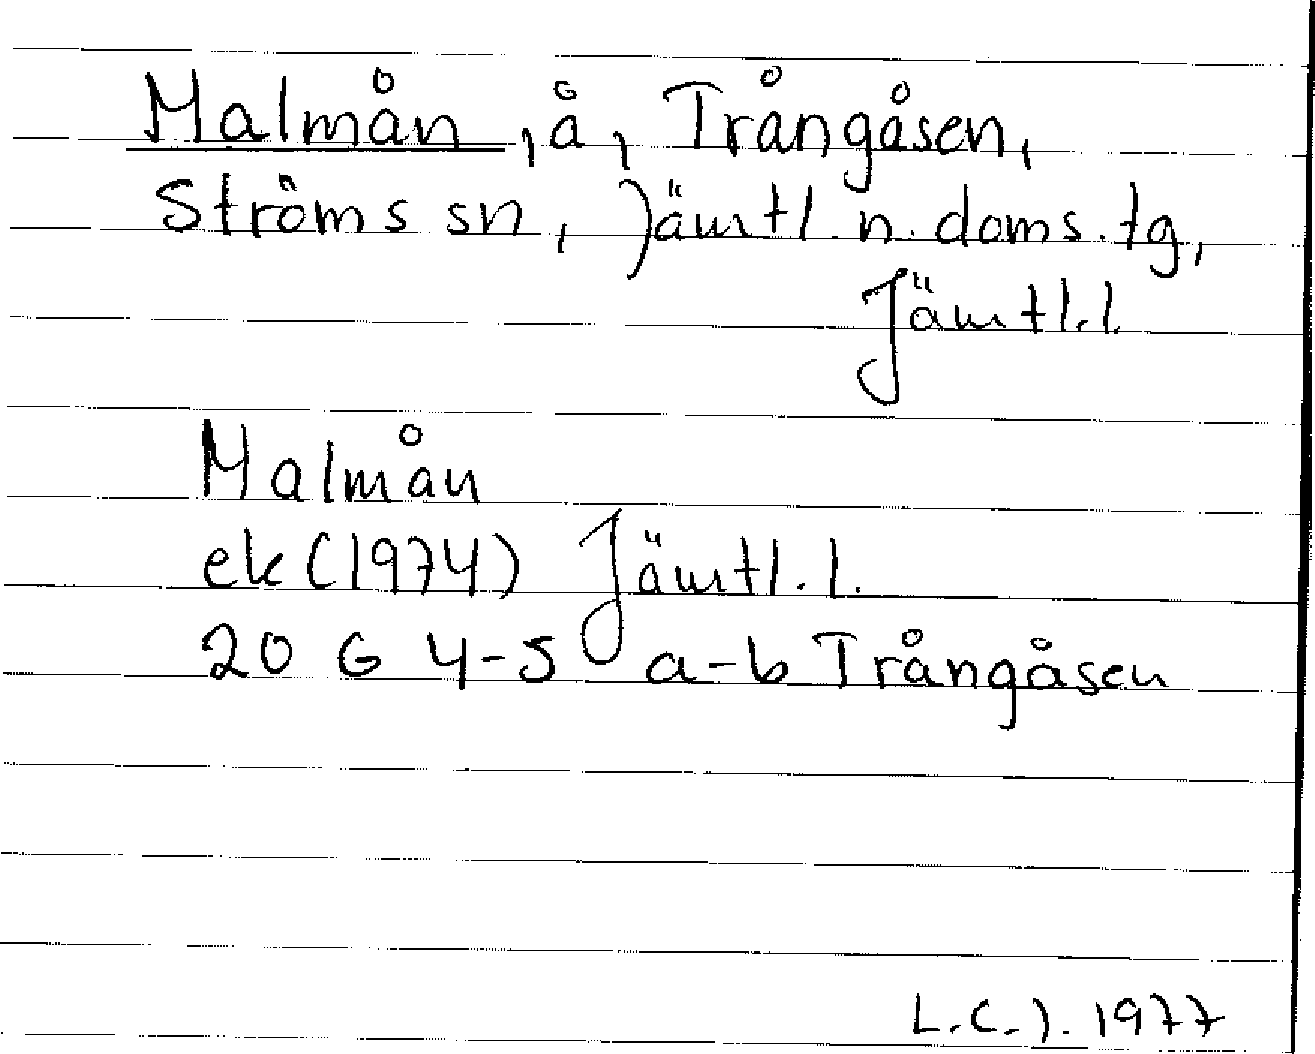 Malmån, å, Trångåsen,
Ströms sn, Jämtl n. doms. tg,
Jämtl. l.
Malmån
ek (1974) Jämtl. l.
20 G 4-5 a-b Trångåsen
L.C.J. 1977